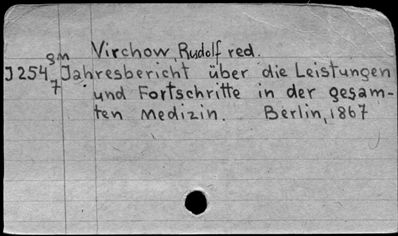 gm Virchow, Rudolf red.
J254 Jahresbericht über die Leistungen
7 und Fortschritte in der gesam-
ten Medizin. Berlin, 1867